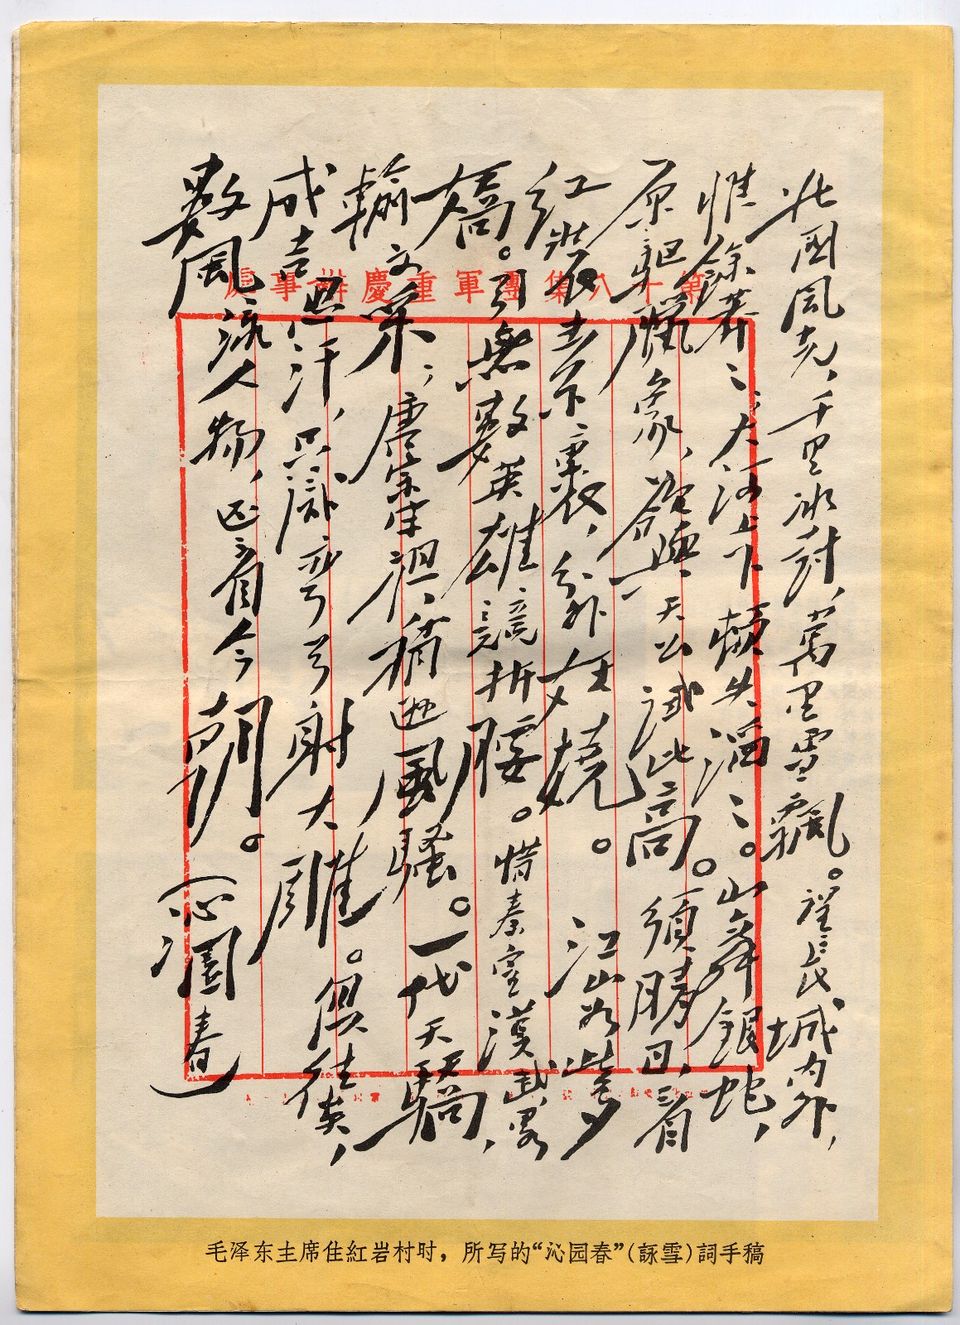 第十八集團軍重慶辦事處
北国風光，千里冰封，萬里雪飘。望長城内外，
惟餘莽々；大河上下頓失滔々。山舞銀蛇，
原驱臘象，欲與天公試比高。須晴日，看
红装素裹，分外妖娆。江山如此多
嬌。引無數英雄競折腰。惜秦皇漢武，畧
輸文采；唐宗宋祖，稍逊風騷。一代天驕，
成吉思汗，只識弯弓射大雕。俱往矣，
數風流人物，还看今朝。
（沁園春）
毛泽东主席住紅岩村时，所写的“沁园春”(詠雪)詞手稿